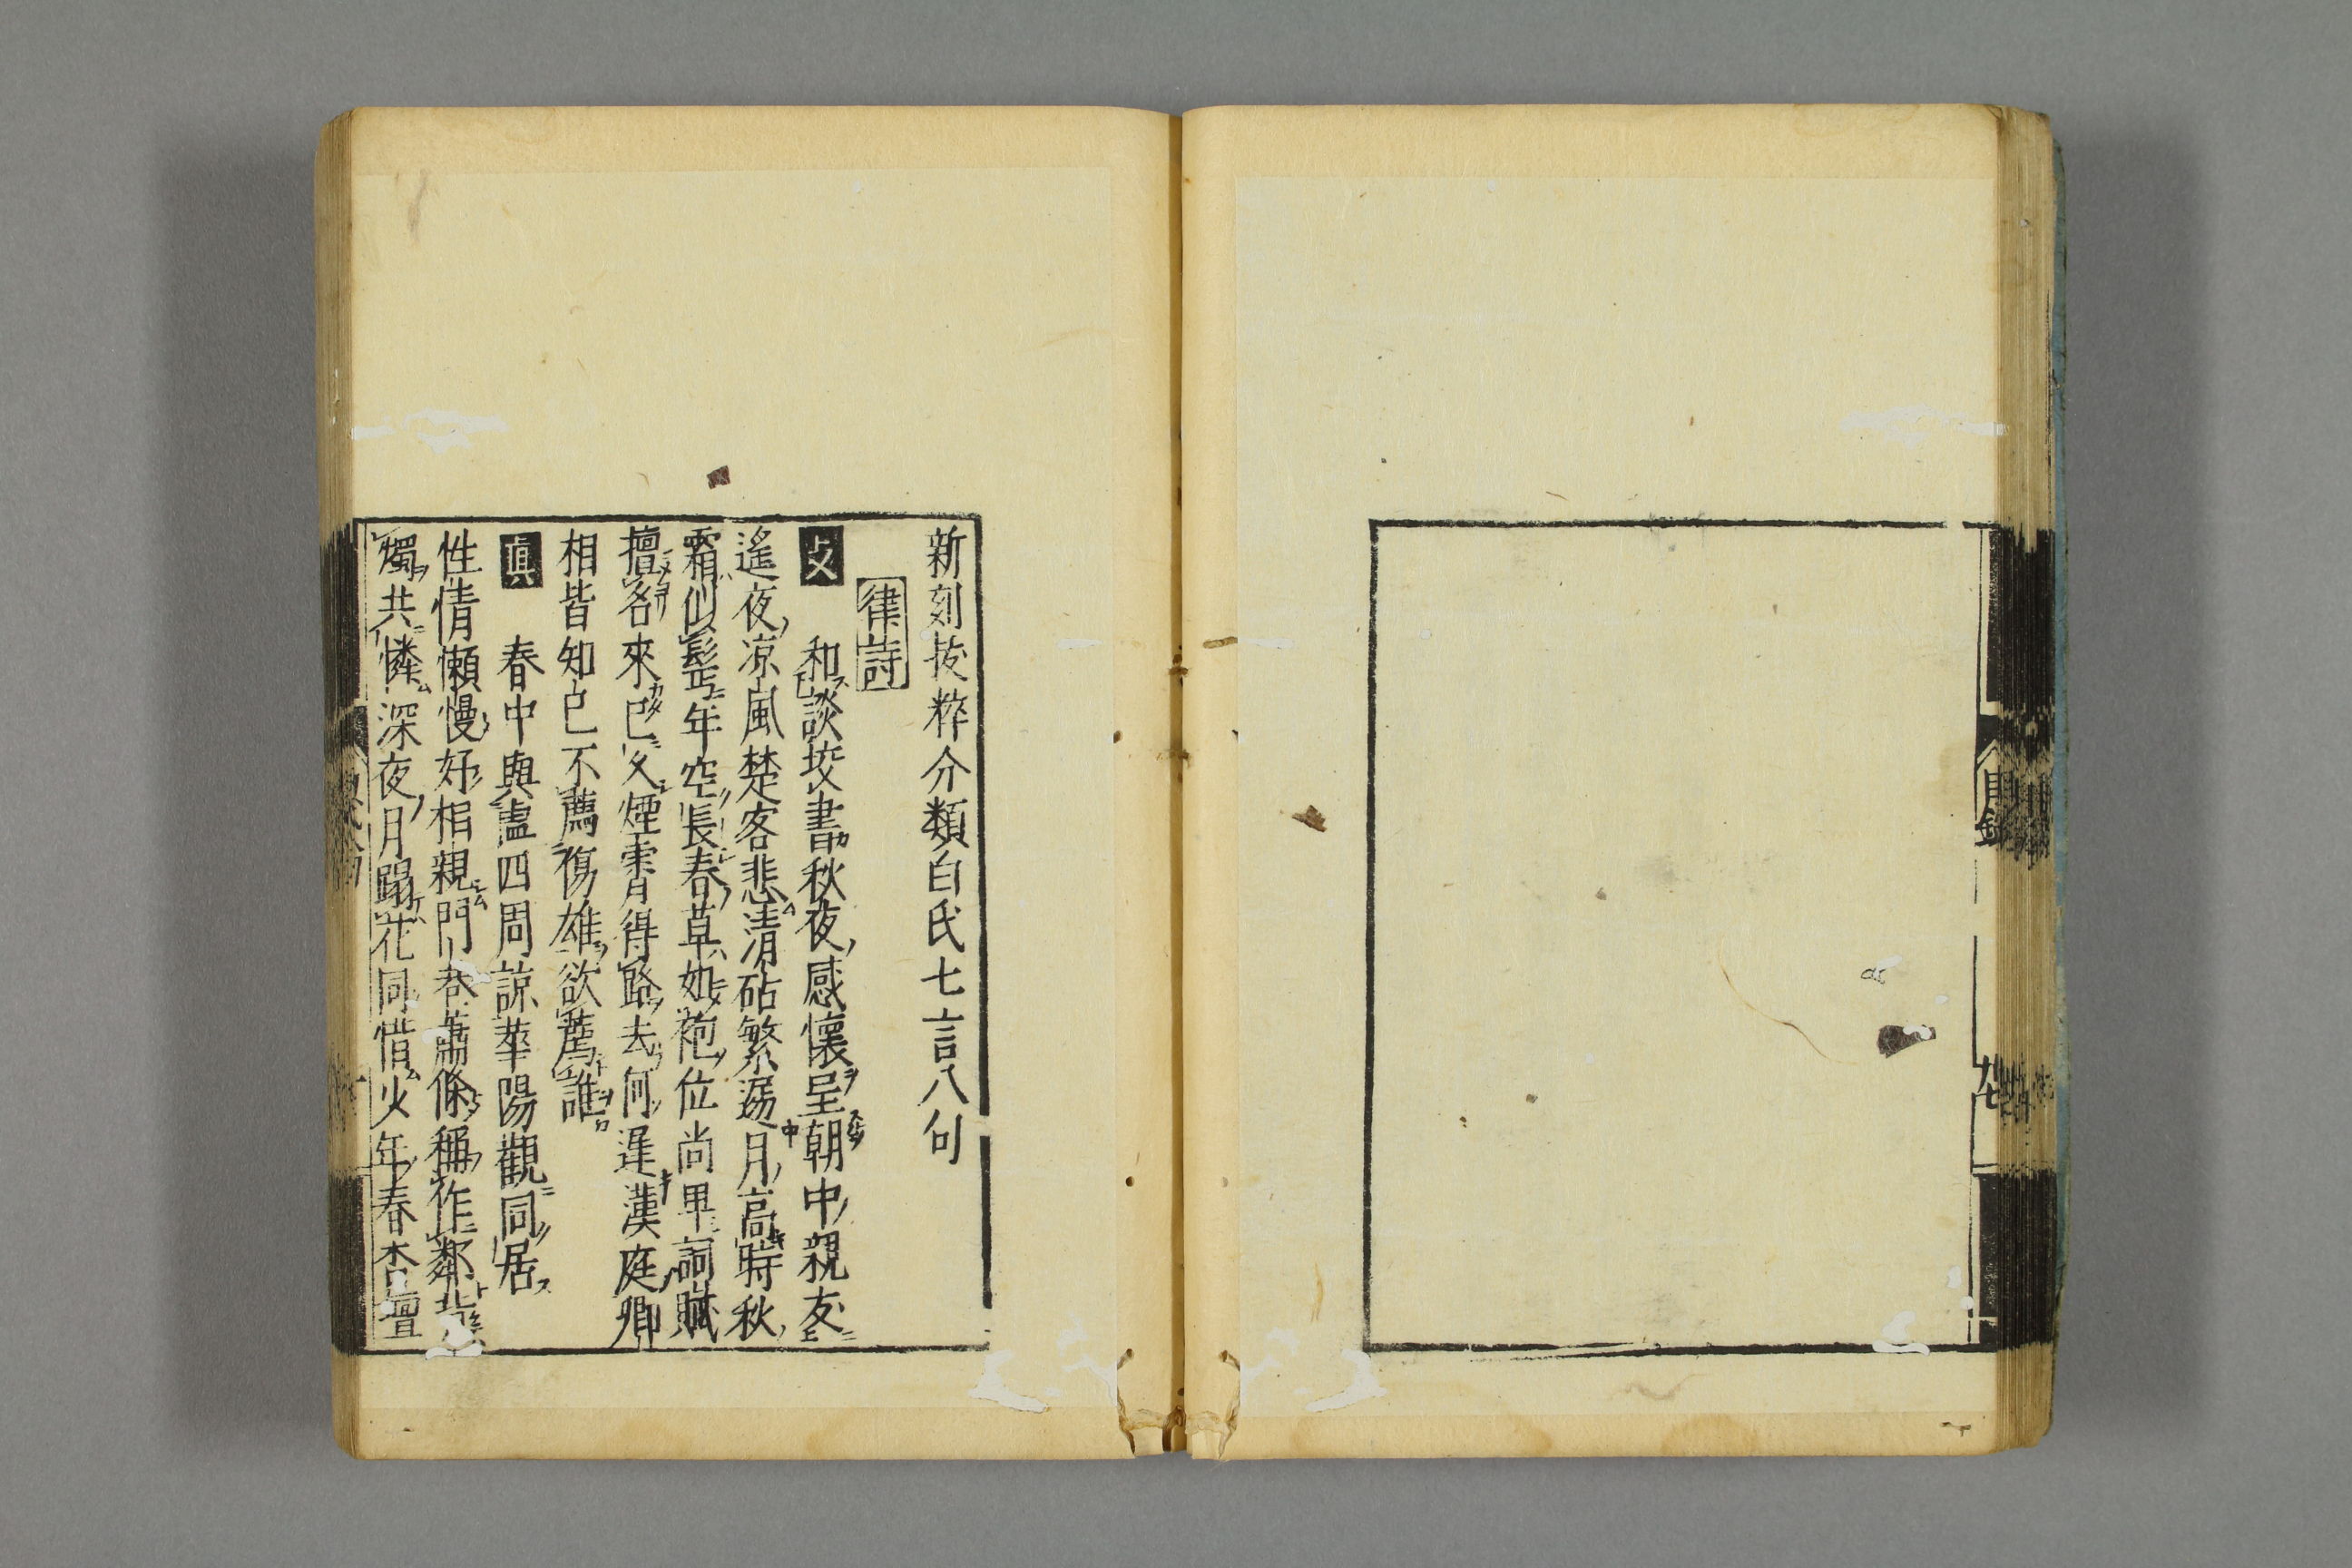 目録
新刻拔粹分類白氏七言八句
律詩
支
和談挍書秋夜感懷呈朝中親友
遙夜凉風楚客悲清砧繁漏月高時秋
霜似髩年空長春草如袍位尚卑詞賦
擅名來已久煙霄得路去何遲漢庭卿
相皆知己不薦傷雄欲薦誰
眞
春中與盧四周諒華陽觀同居
性情懶慢好相親門巷蕭條稱作鄰背
燭共憐深夜月蹋花同惜少年春杏壇